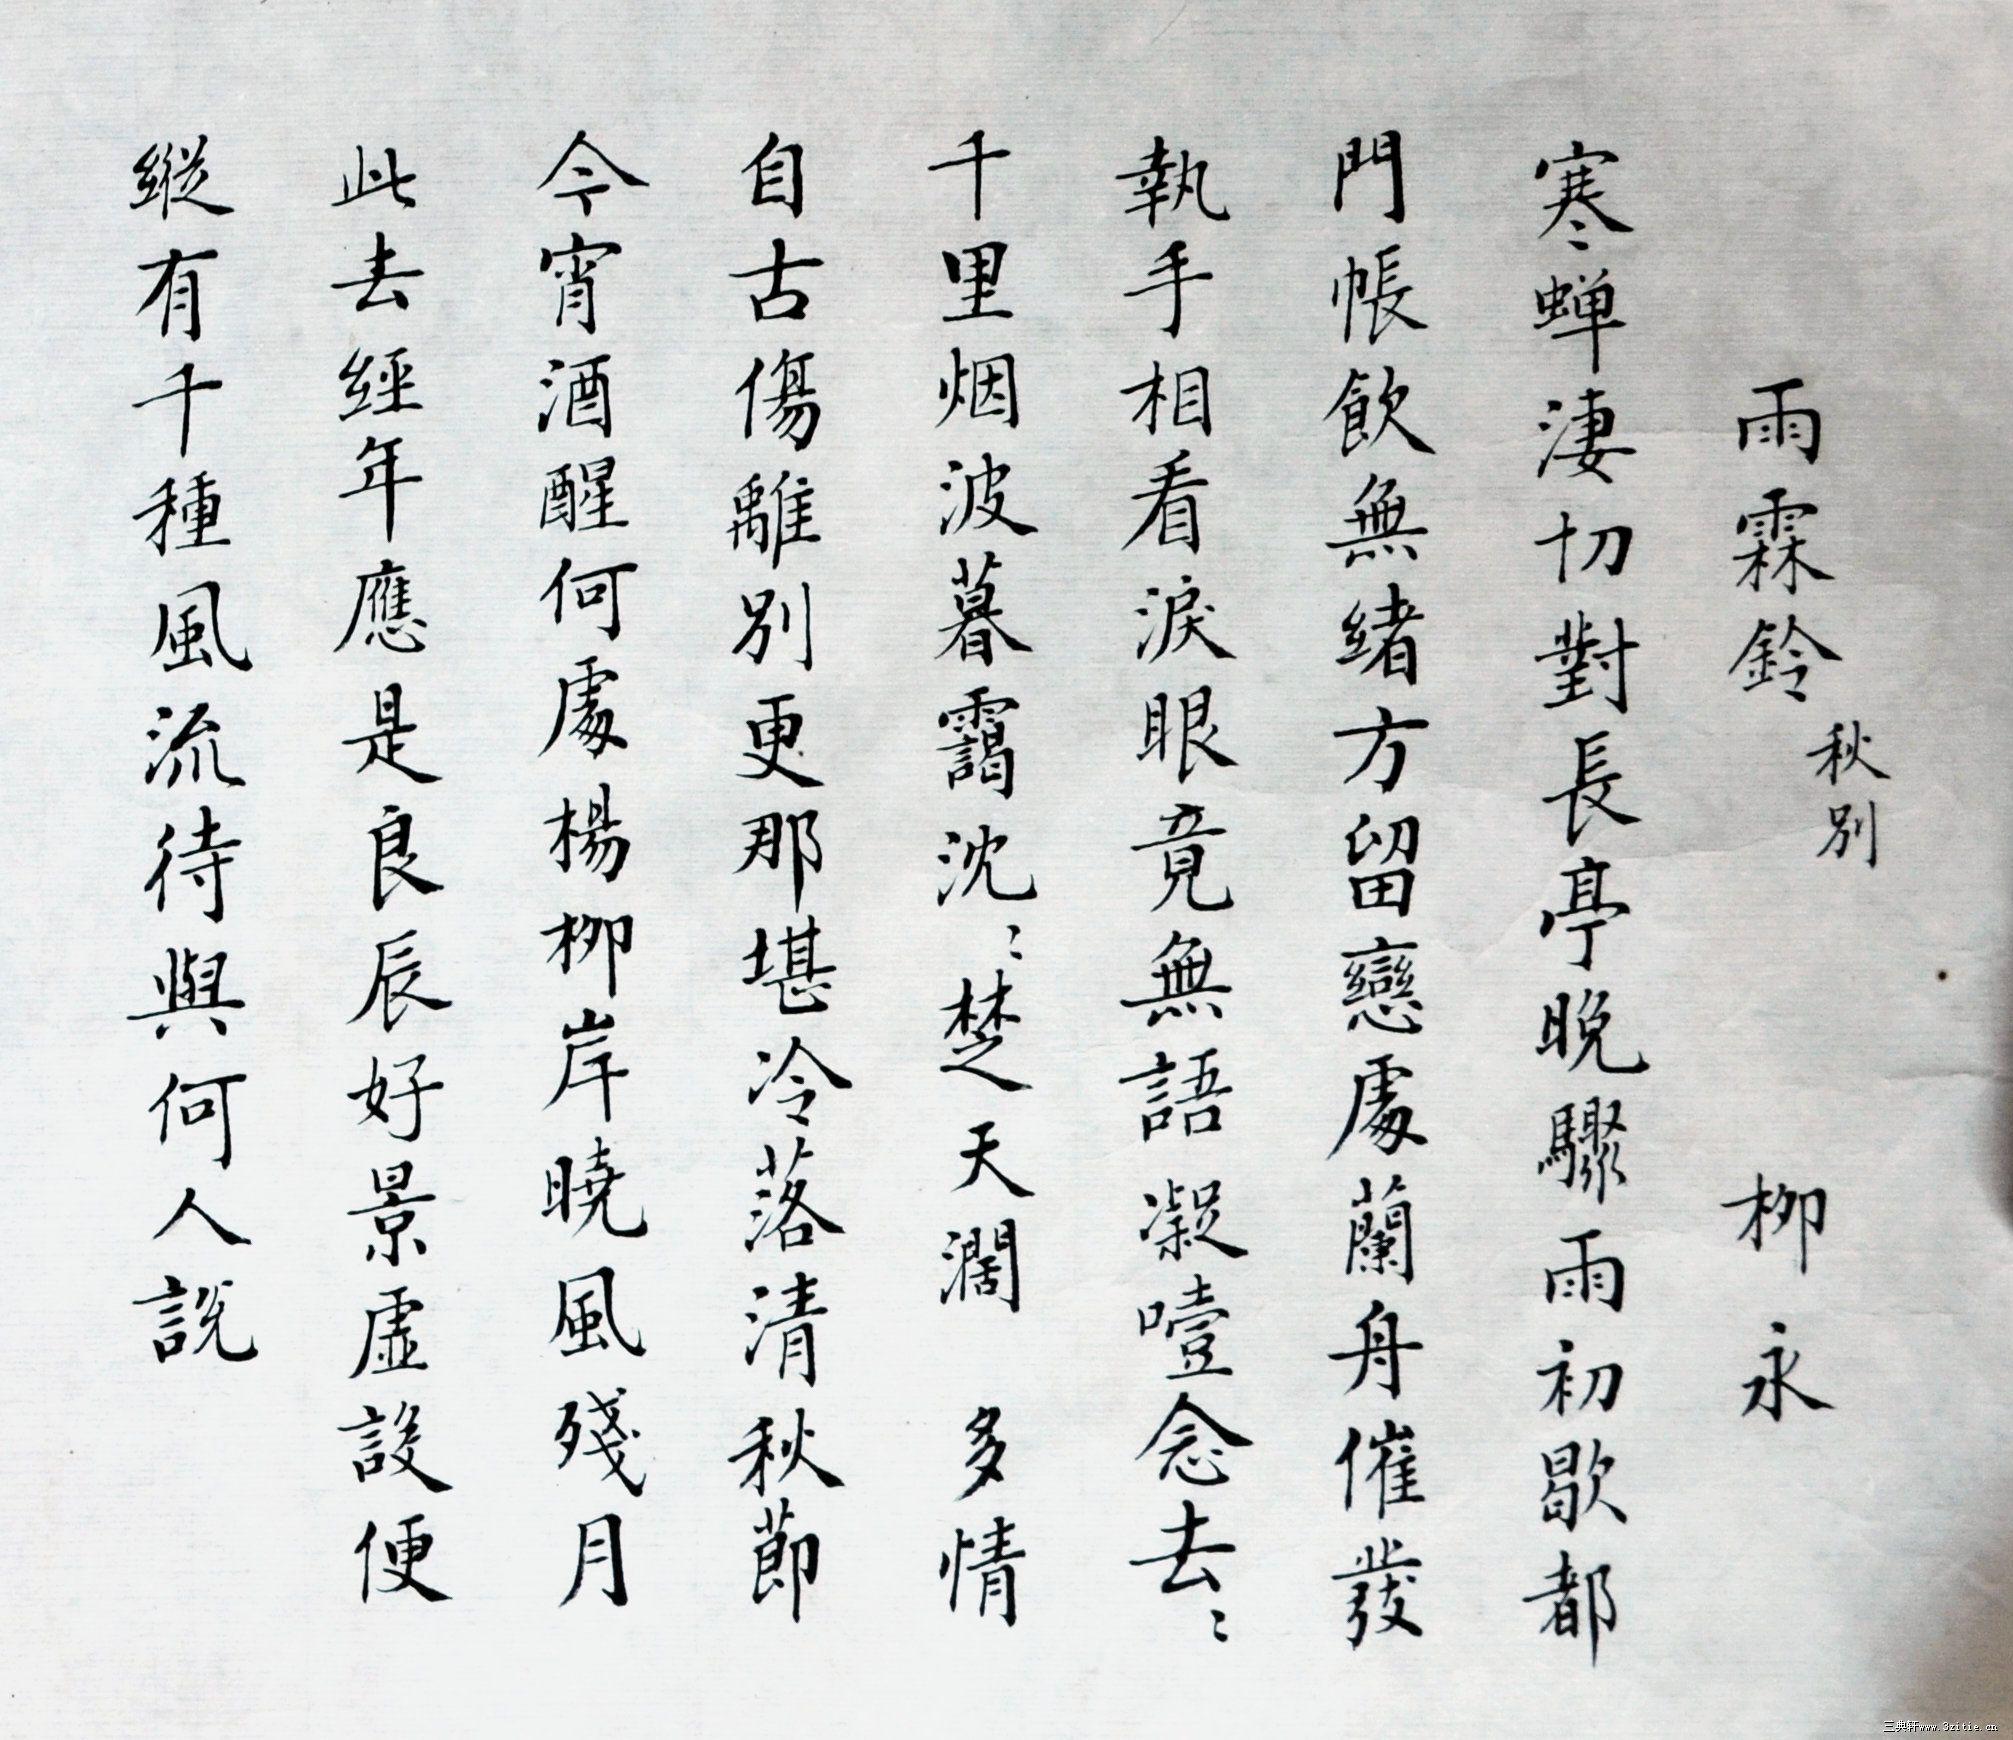 雨霖鈴 秋别 柳永
寒蝉淒切對長亭晚驟雨初歇都
門帳飲無緒方留戀處蘭舟催發
執手相看淚眼竟無語凝噎念去〻
千里烟波暮靄沈〻楚天濶 多情
自古傷離别更那堪冷落清秋節
今宵酒醒何處楊柳岸曉風殘月
此去經年應是良辰好景虛設便
縱有千種風流待與何人說
三典轩www.3zitie.cn